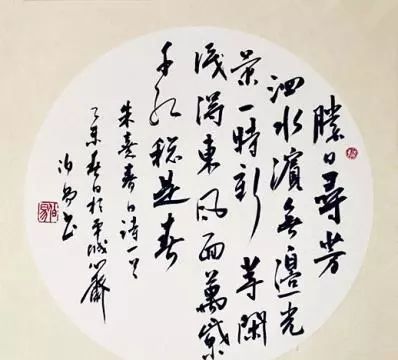 勝日尋芳
泗水濱無邊光
景一時新等閑
識得東風面萬紫
千紅總是春
朱熹春日詩一首
乙未春日於城心齋
書